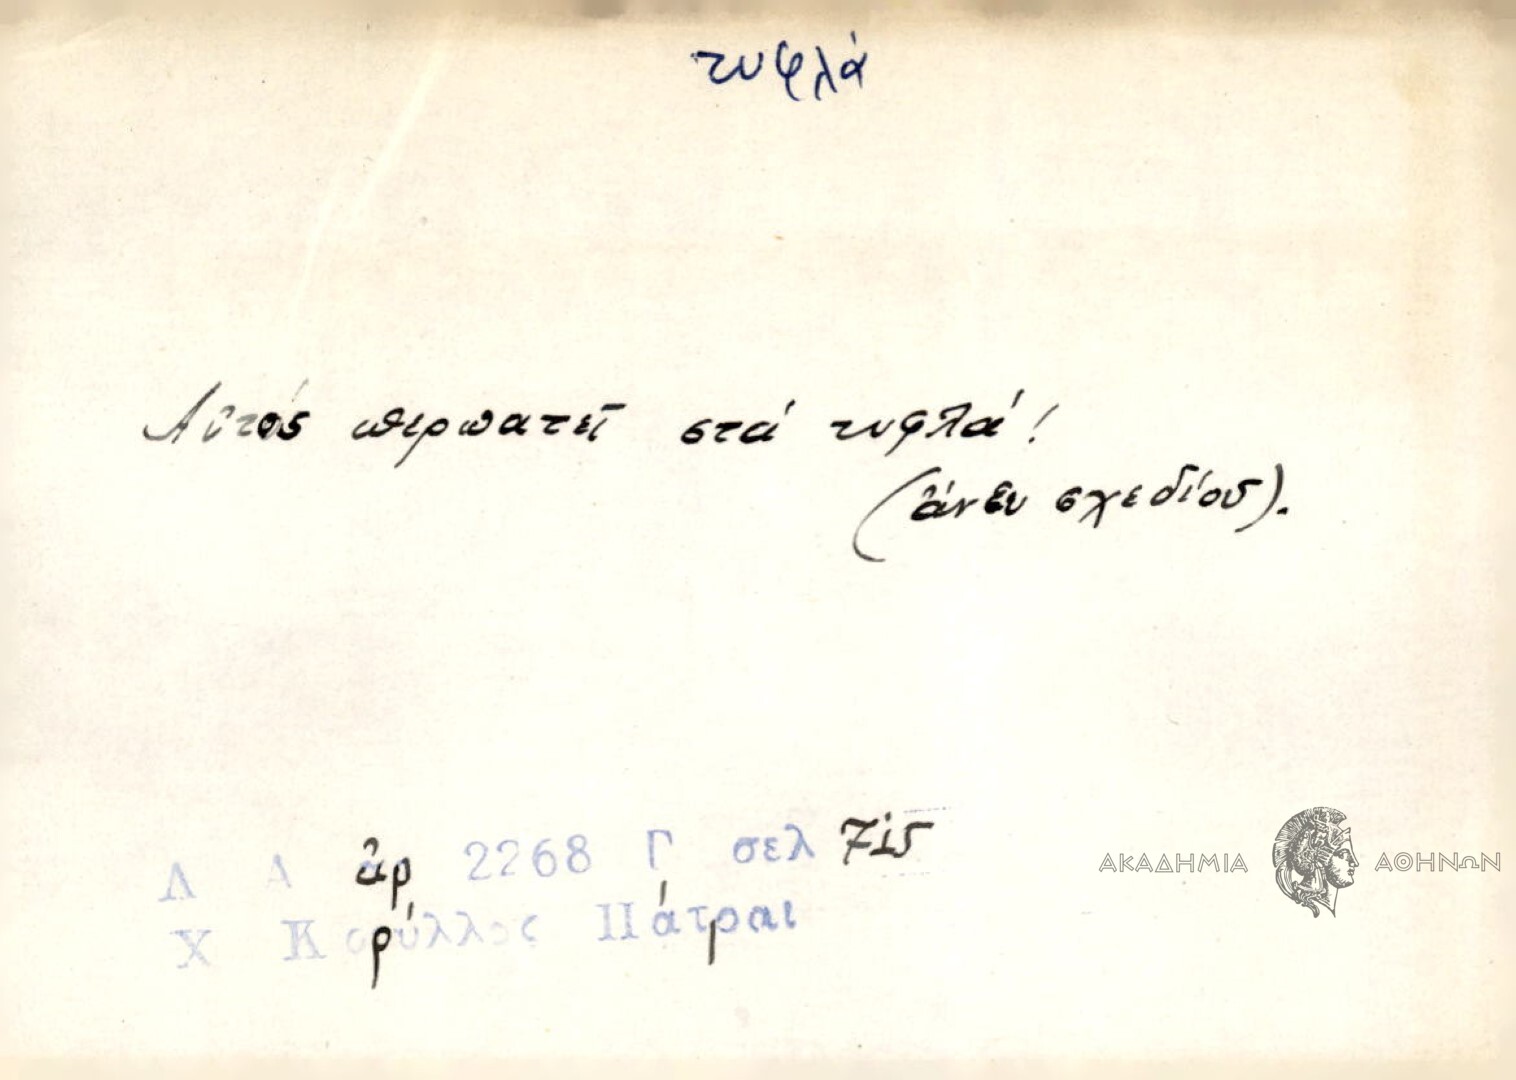 τυφλά
Αὐτός περπατεῖ στά τυφλά!
(ἄνευ σχεδίου).
Λ Α ἀρ 2268 Γ σελ 715
Χ Κορύλλος Πάτραι
ΑΚΑΔΗΜΙΑ ΑΘΗΝΩΝ